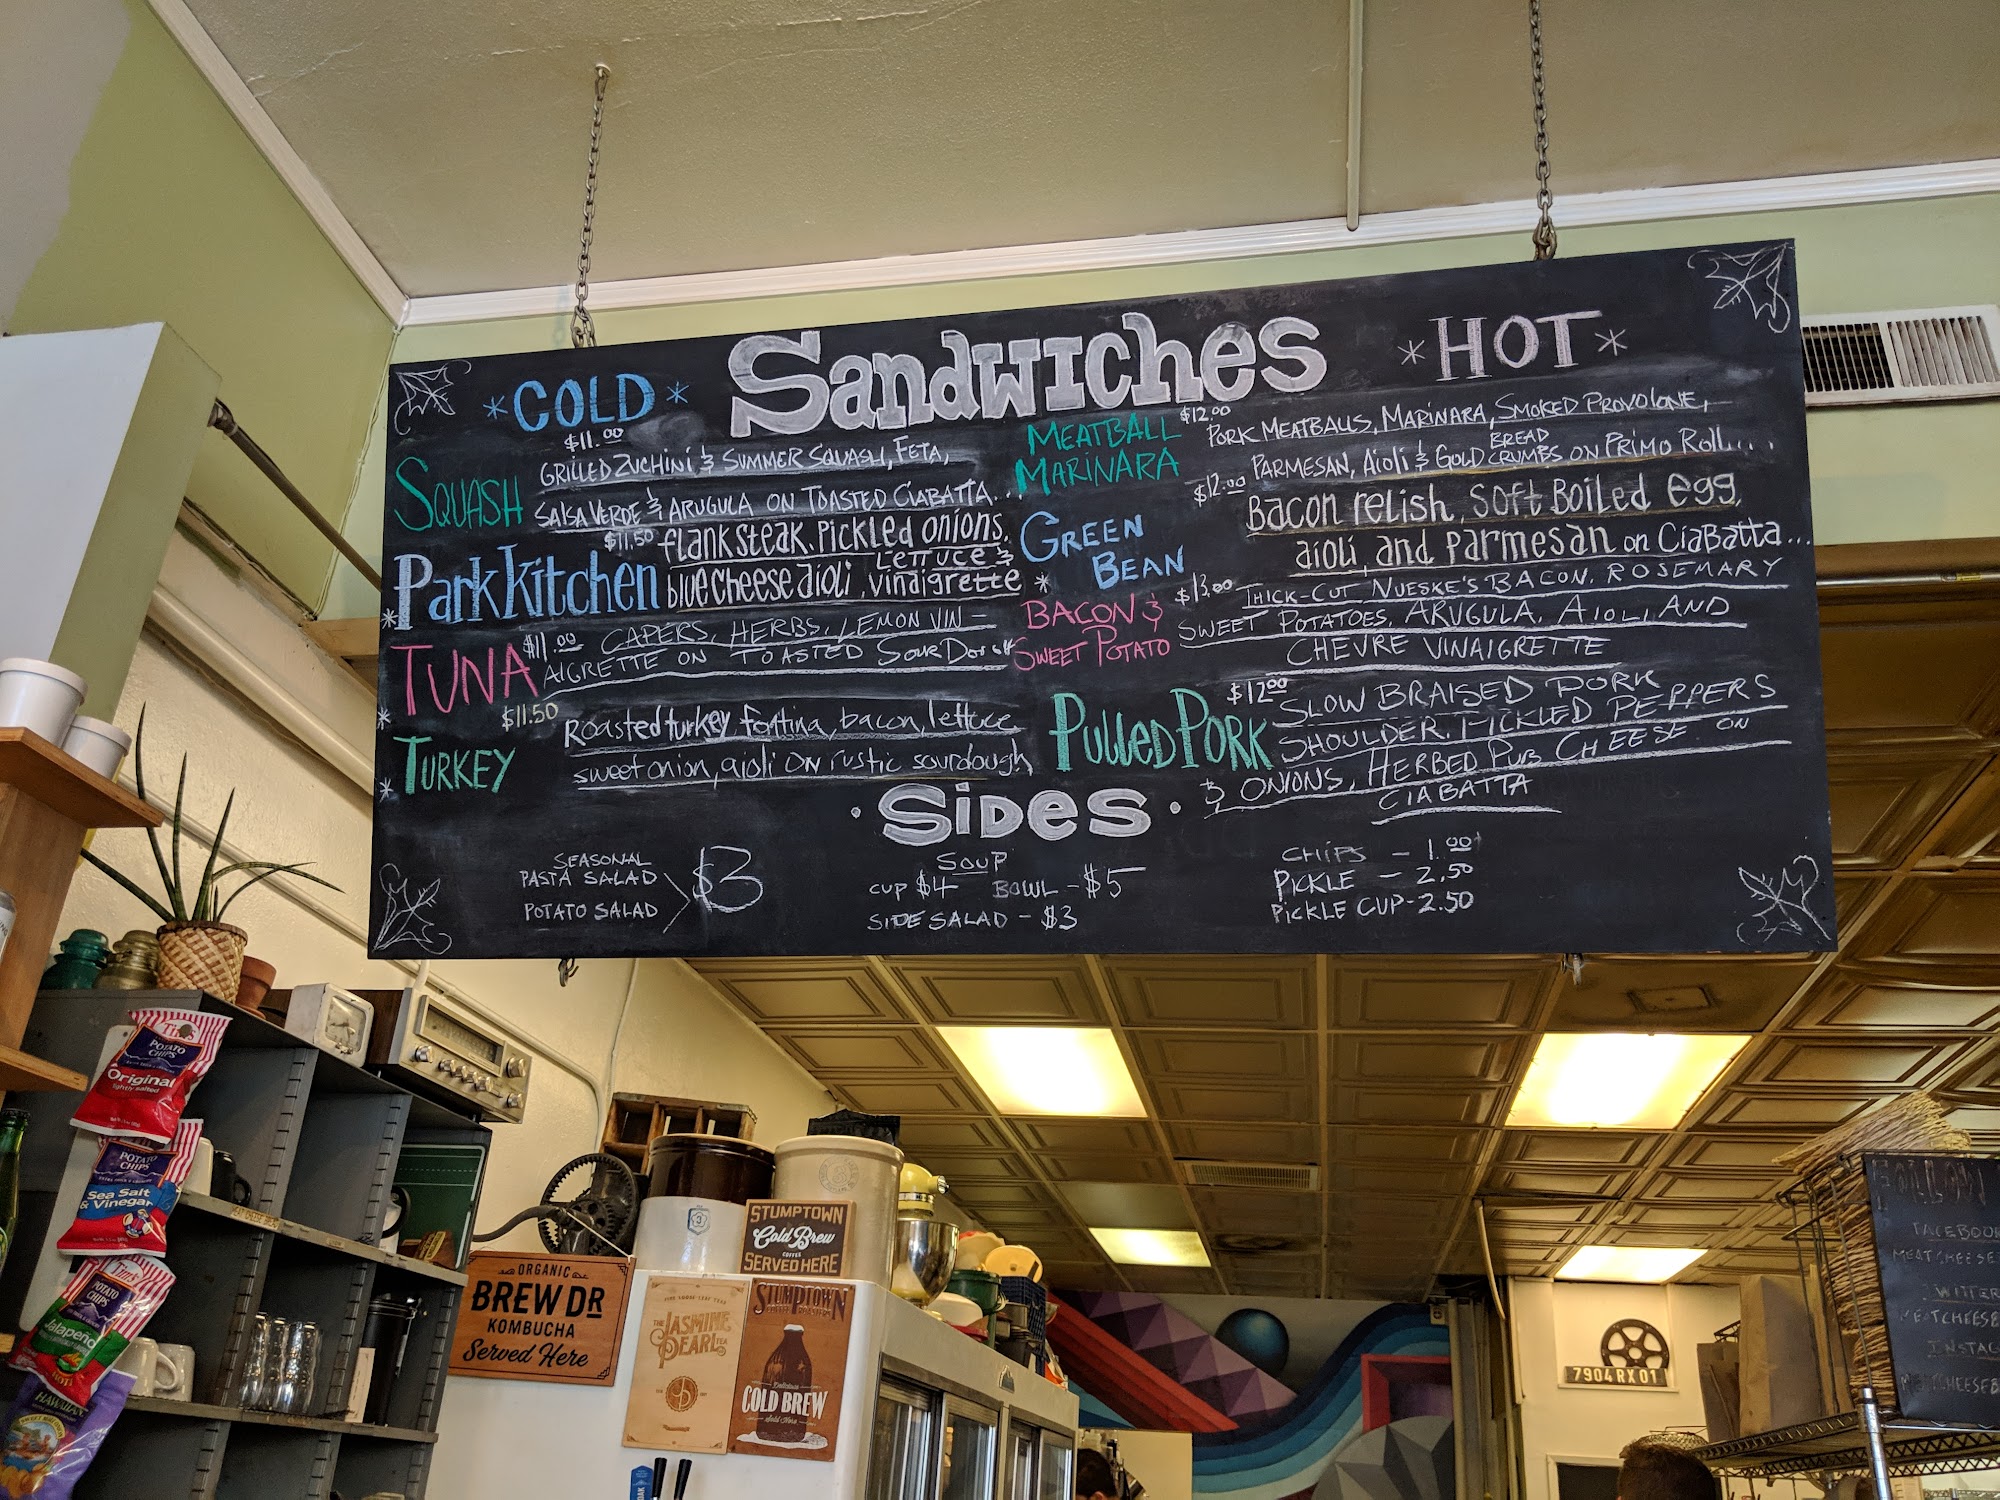 *COLD*
Sandwiches
*HOT*
$11.00
SQUASH
GRILLED ZUCHINI & SUMMER SQUASH, FETA,
SALSA VERDE & ARUGULA ON TOASTED CIABATTA...
$11.50
Park Kitchen
flank steak, Pickled onions,
Lettuce &
blue cheese aioli, vinaigrette
TUNA
$11.00
CAPERS, HERBS, LEMON VIN-
AIGRETTE ON TOASTED SOURDOUGH
$11.50
* TURKEY
Roasted turkey, fontina, bacon, lettuce
sweet onion, aioli on rustic sourdough
MEATBALL
MARINARA
$12.00
PORK MEATBALLS, MARINARA, SMOKED PROVOLONE,
BREAD
PARMESAN, AIOLI & GOLD CRUMBS ON PRIMO ROLL....
GREEN
BEAN
$12.00
Bacon relish, soft Boiled egg,
aioli, and Parmesan on CiaBatta...
* BACON &
SWEET POTATO
$13.00
THICK-CUT NUESKE'S BACON, ROSEMARY
SWEET POTATOES, ARUGULA, AIOLI, AND
CHEVRE VINAIGRETTE
PULLED PORK
$12.00
SLOW BRAISED PORK
SHOULDER, PICKLED PEPPERS
& ONIONS, HERBED PUB CHEESE ON
CIABATTA
• SIDES •
SEASONAL
PASTA SALAD
POTATO SALAD
$3
SOUP
CUP $4 BOWL - $5
SIDE SALAD - $3
CHIPS - 1.00
PICKLE - 2.50
PICKLE CUP - 2.50
Tim's
POTATO CHIPS
Original
lightly salted
POTATO CHIPS
Sea Salt
& Vinegar
Tim's
POTATO CHIPS
Jalapeño
HOT!
HAWAIIAN
ORGANIC
BREW DR
KOMBUCHA
Served Here
STUMPTOWN
Cold Brew
COFFEE
SERVED HERE
THE JASMINE
PEARL TEA
STUMPTOWN
COFFEE ROASTERS
COLD BREW
Sold Here
7904 RX 01
FOLLOW
FACEBOO
MEATCHEESE
WITTER
MEATCHEESEB
INSTAG
MEATCHEESEB